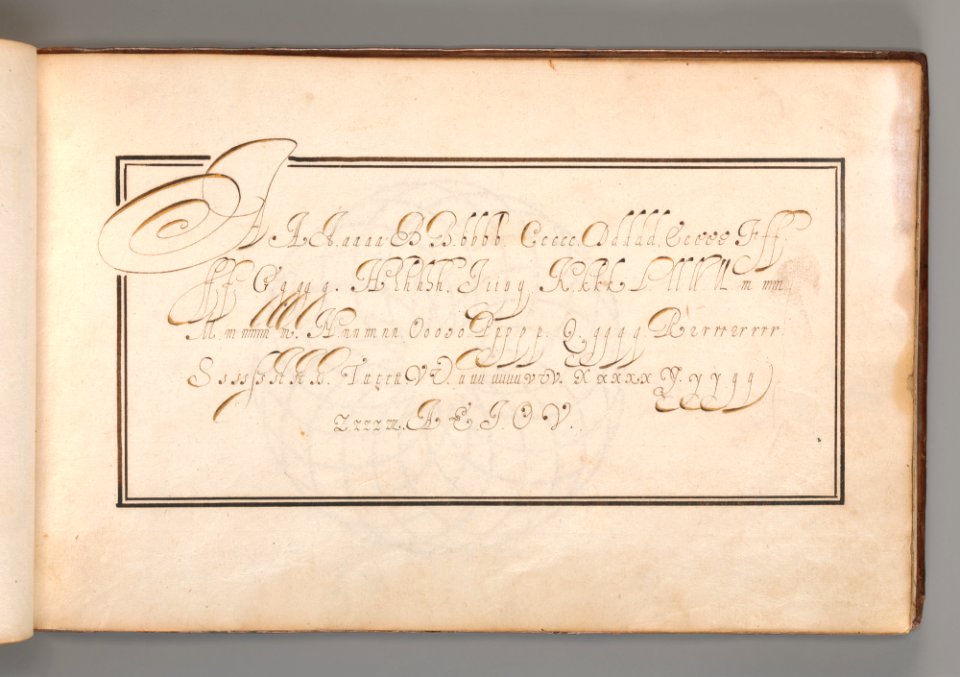 A A A. a a a a B B. b b b b. C c c c c. D d d d d. E e e e e F f f
f f G g g g g. H h h h h. I i i p g. K k k k L l l l l ll m mm
M. m mmm m. N. nn m nn. O o o o o P p p p p. Q. q q q q q R 2 r r r 2 r r r r.
S s s s s ſ ſt ſt ſt. T t t t t V V. u uu uuuu v v v. X x x x x x Y. y y y y
Z z z z z. A E. I. O V.